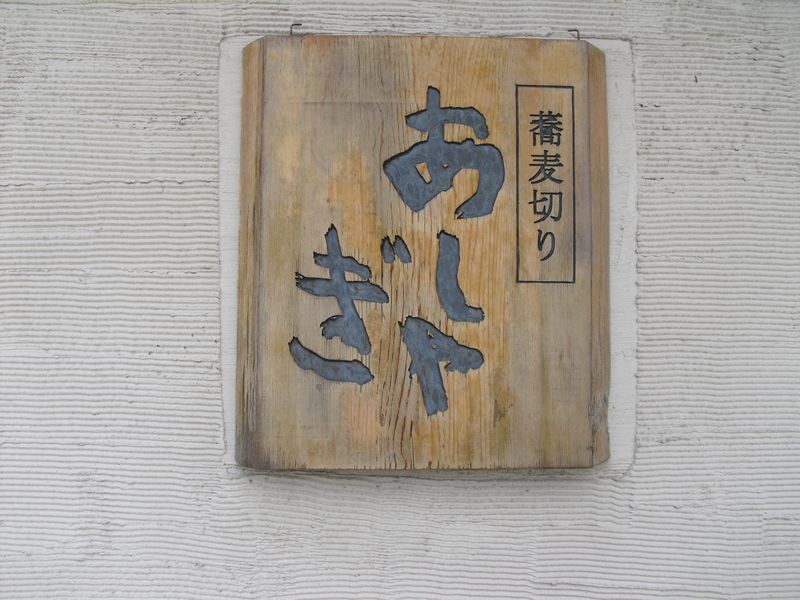 蕎麦切り
あしや
ぎ